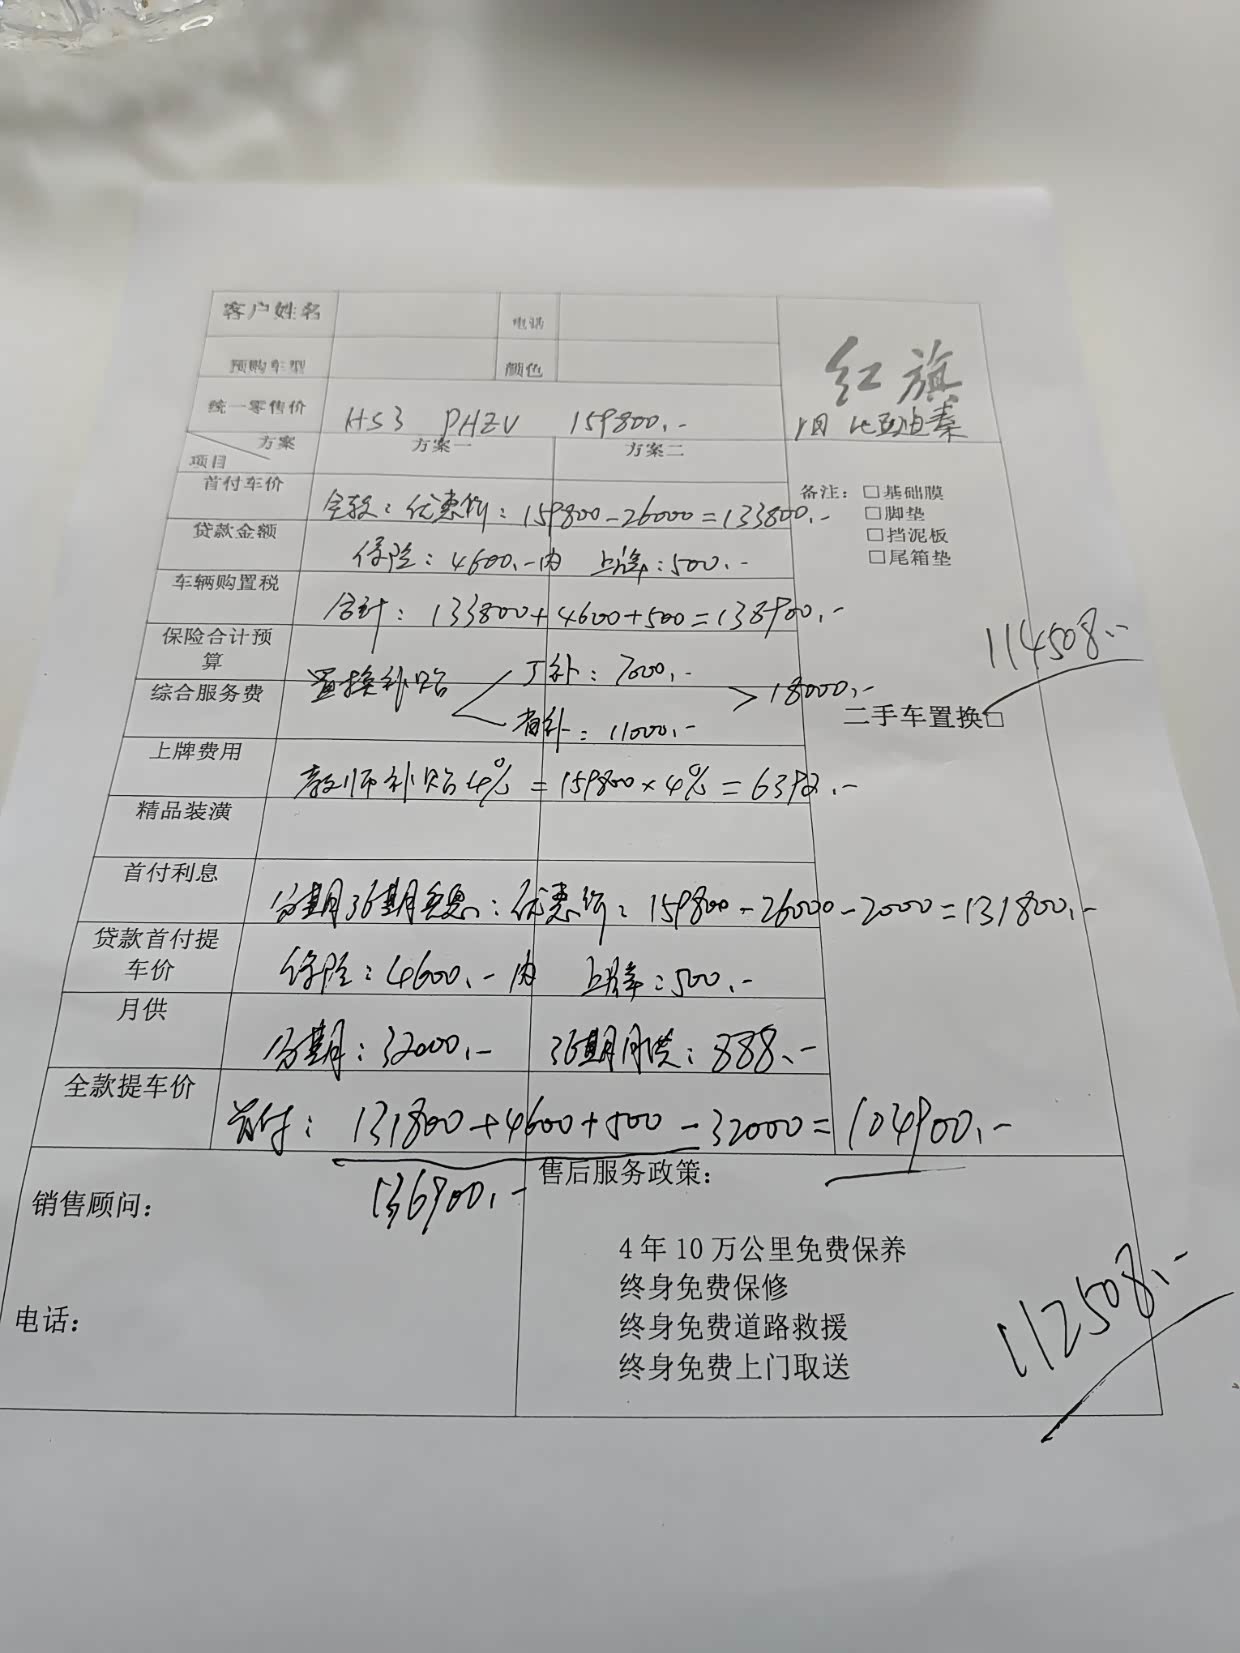 客户姓名 电话
预购车型 颜色
红旗
统一零售价 HS3 PHEV 159800.-
比亚迪秦
方案 项目 方案一 方案二
首付车价 全款：优惠价：159800-26000=133800.-
备注：□基础膜
□脚垫
□挡泥板
□尾箱垫
贷款金额 保险：4600.-内 上牌：500.-
车辆购置税 合计：133800+4600+500=138900.-
114508.-
保险合计预算 置换补贴 厂补：7000.-
综合服务费 省补：11000.- >18000.-
二手车置换□
上牌费用 教师补贴4%=159800×4%=6392.-
精品装潢
首付利息 分期36期免息：优惠价：159800-26000-2000=131800.-
贷款首付提车价 保险：4600.-内 上牌：500.-
月供 分期：32000.- 36期月供：888.-
全款提车价 首付：131800+4600+500-32000=104900.-
136900.-
销售顾问：
售后服务政策：
4年10万公里免费保养
终身免费保修
终身免费道路救援
终身免费上门取送
电话：
112508.-